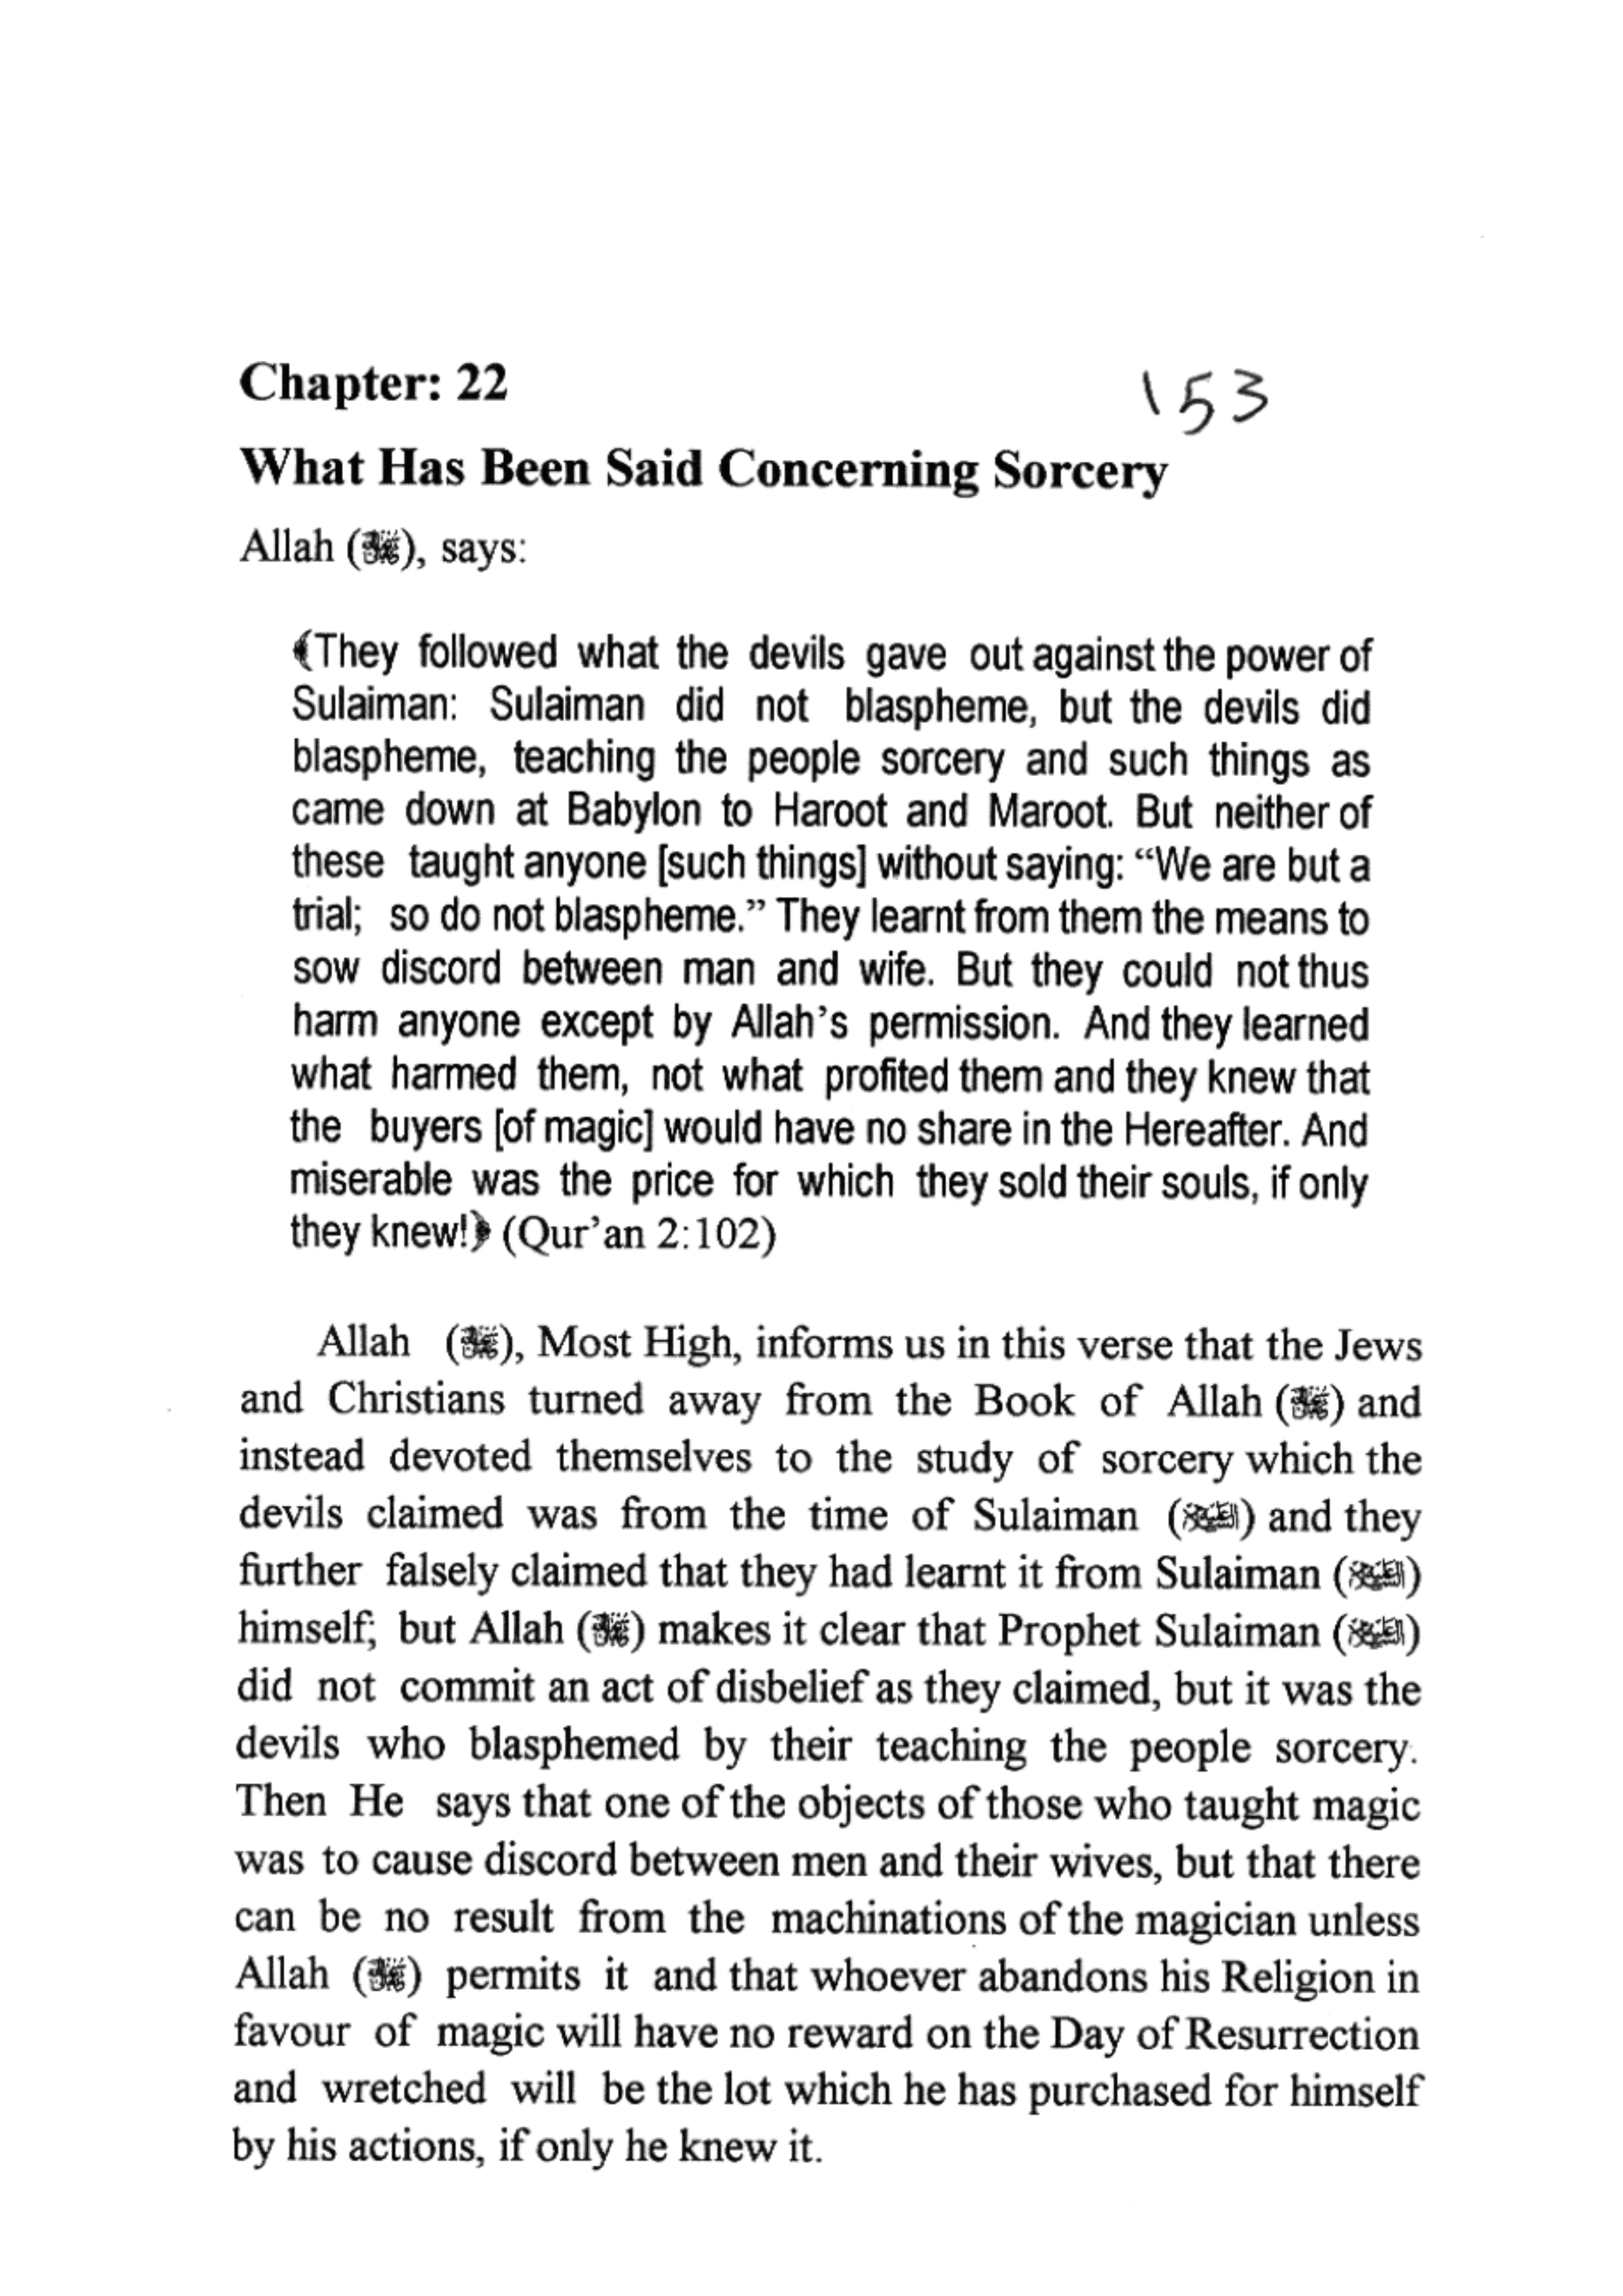 Chapter: 22
153
What Has Been Said Concerning Sorcery
Allah (ﷻ), says:
﴾They followed what the devils gave out against the power of
Sulaiman: Sulaiman did not blaspheme, but the devils did
blaspheme, teaching the people sorcery and such things as
came down at Babylon to Haroot and Maroot. But neither of
these taught anyone [such things] without saying: “We are but a
trial; so do not blaspheme.” They learnt from them the means to
sow discord between man and wife. But they could not thus
harm anyone except by Allah’s permission. And they learned
what harmed them, not what profited them and they knew that
the buyers [of magic] would have no share in the Hereafter. And
miserable was the price for which they sold their souls, if only
they knew!﴿ (Qur’an 2:102)
Allah (ﷻ), Most High, informs us in this verse that the Jews
and Christians turned away from the Book of Allah (ﷻ) and
instead devoted themselves to the study of sorcery which the
devils claimed was from the time of Sulaiman () and they
further falsely claimed that they had learnt it from Sulaiman ()
himself; but Allah (ﷻ) makes it clear that Prophet Sulaiman ()
did not commit an act of disbelief as they claimed, but it was the
devils who blasphemed by their teaching the people sorcery.
Then He says that one of the objects of those who taught magic
was to cause discord between men and their wives, but that there
can be no result from the machinations of the magician unless
Allah (ﷻ) permits it and that whoever abandons his Religion in
favour of magic will have no reward on the Day of Resurrection
and wretched will be the lot which he has purchased for himself
by his actions, if only he knew it.